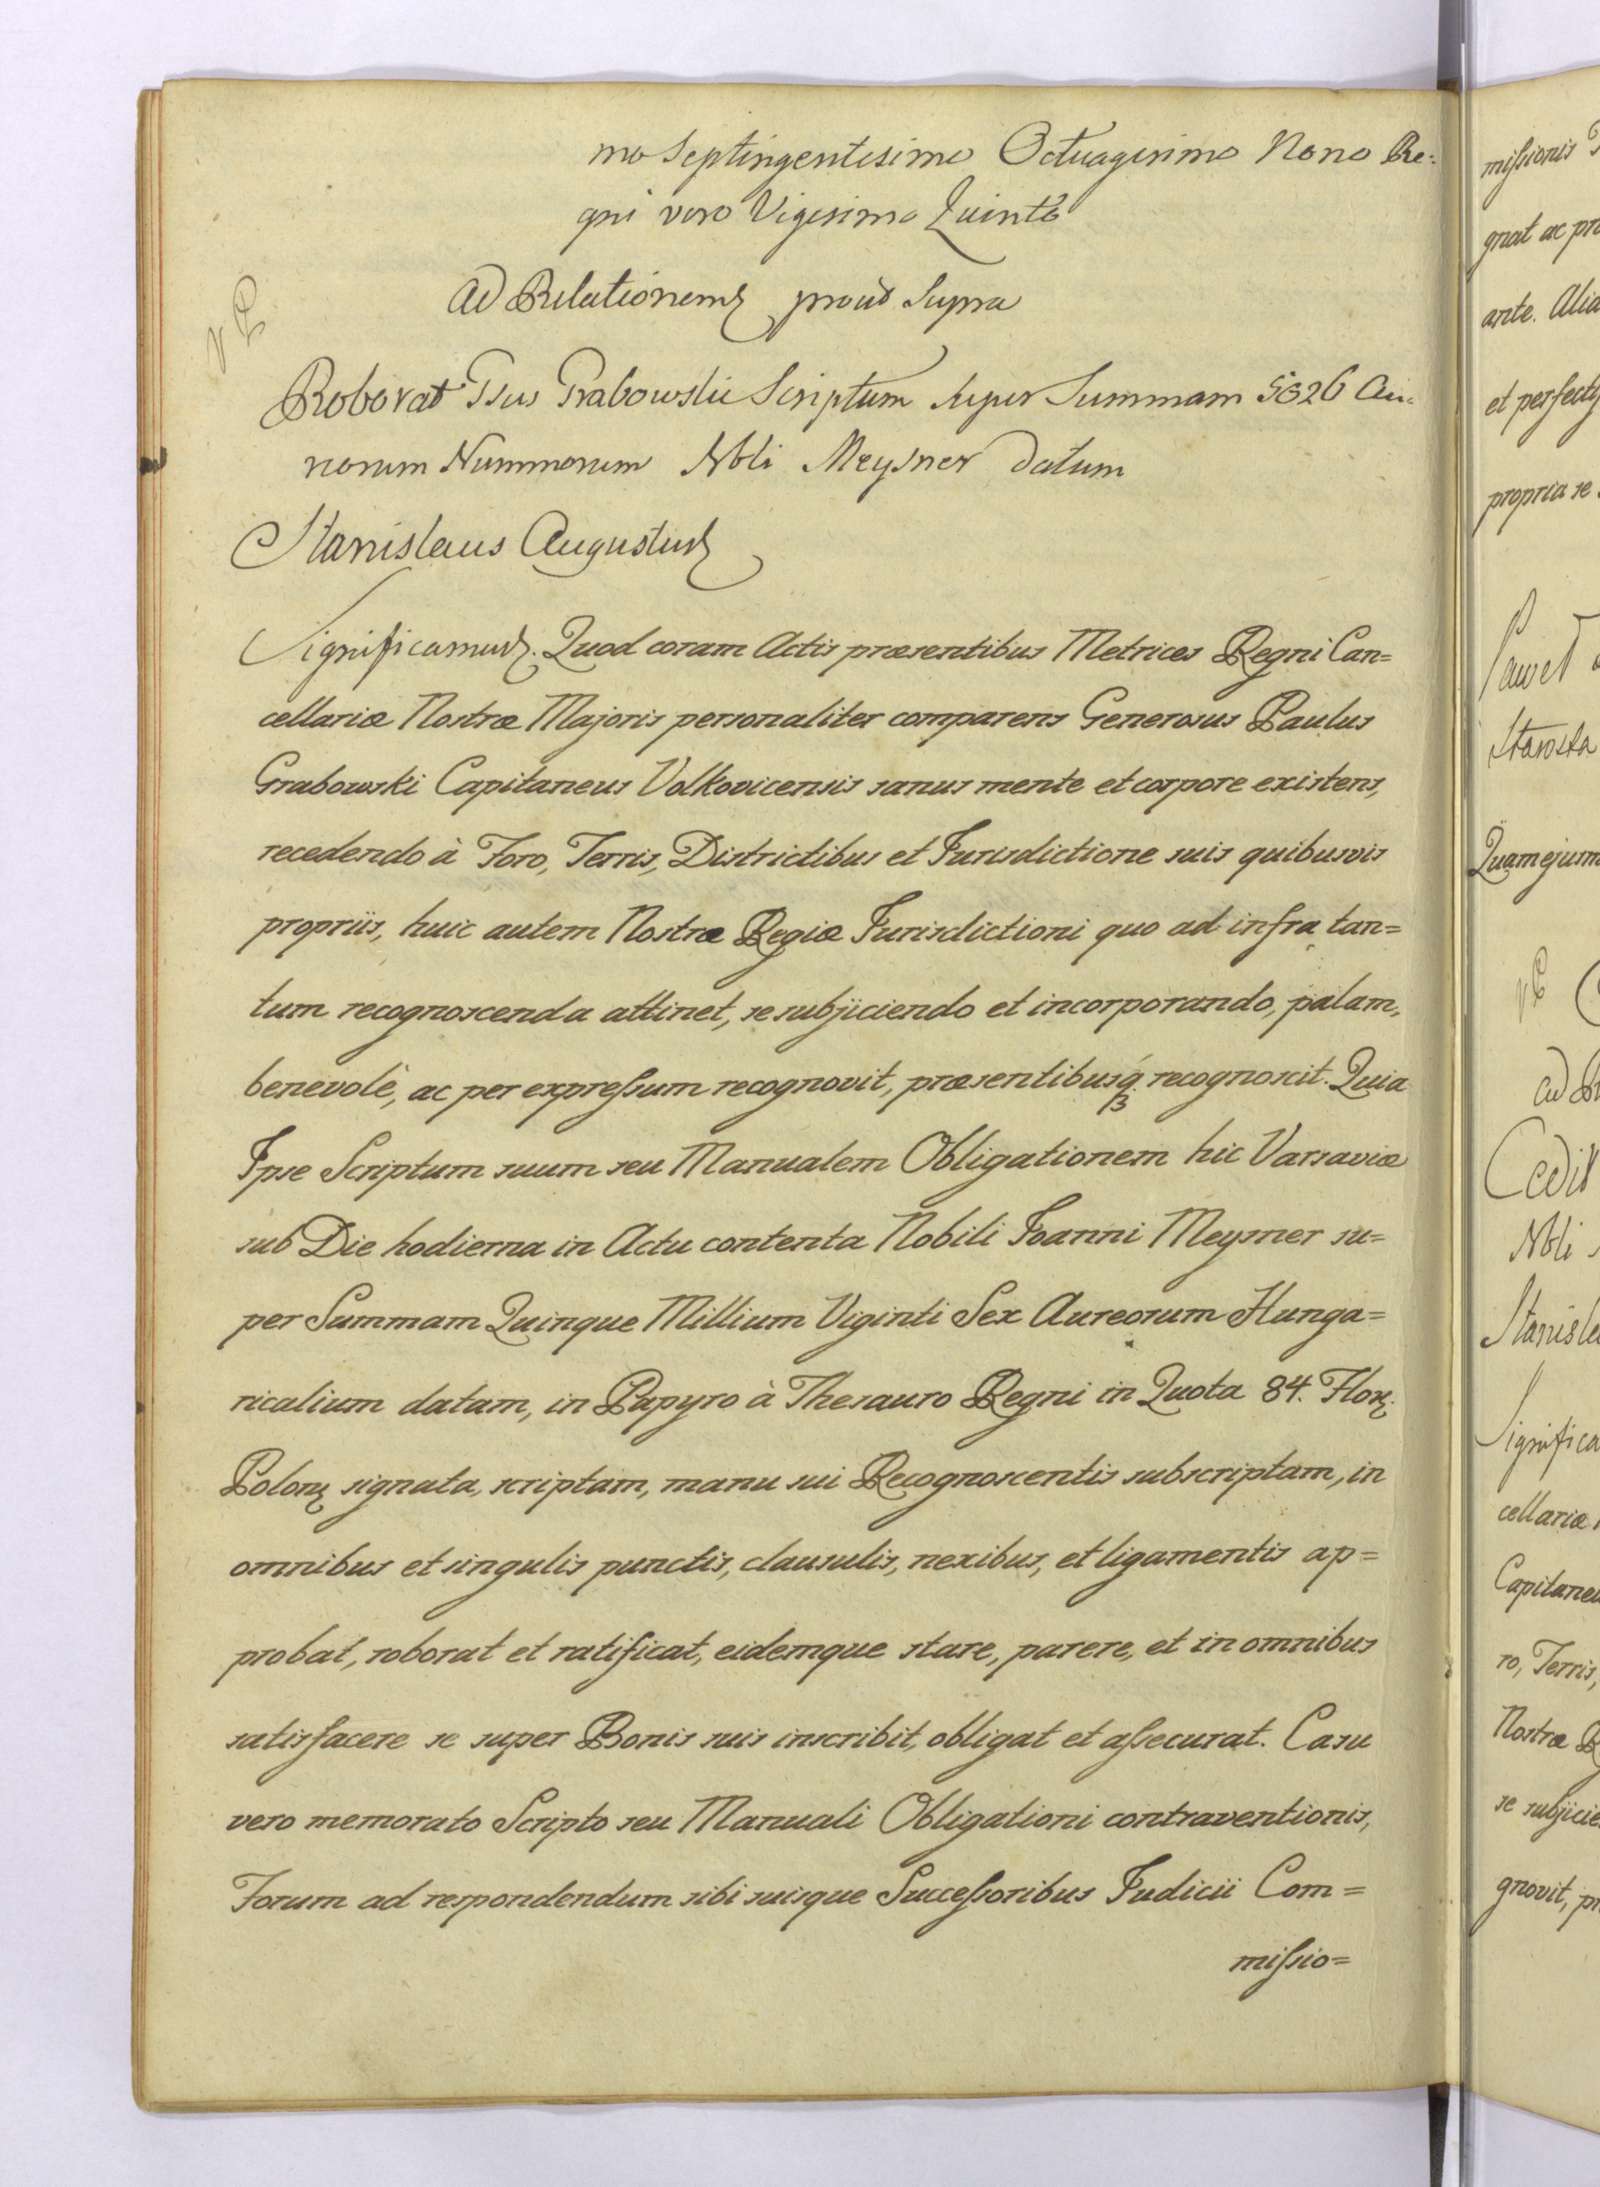 mo Septingentesimo Octuagesimo Nono Re:
gni vero Vigesimo Quinto
Ad Relationem prout Supra
Roborat Gsus Grabowski Scriptum super Summam 5026 Au=
norum Nummorum Nbli Meysner datum
Stanislaus Augustus
Significamus. Quod coram Actis præsentibus Metrices Regni Can=
cellariæ Nostræ Majoris personaliter comparens Generosus Paulus
Grabowski Capitaneus Volkovicensis sanus mente et corpore existens,
recedendo à Foro, Terris, Districtibus et Jurisdictione suis quibusvis
propriis, huic autem Nostræ Regiæ Jurisdictioni quo ad infra tan=
tum recognoscenda attinet, se subjiciendo et incorporando, palam,
benevolè, ac per expressum recognovit, præsentibusq́ recognoscit. Quia
Ipse Scriptum suum seu Manualem Obligationem hic Varsaviæ
sub Die hodierna in Actu contenta Nobili Joanni Meysner su=
per Summam Quinque Millium Viginti Sex Aureorum Hunga=
ricalium datam, in Papyro à Thesauro Regni in Quota 84. Flor.
Polon signata, scriptam, manu sui Recognoscentis subscriptam, in
omnibus et singulis punctis, clausulis, nexibus, et ligamentis ap=
probat, roborat et ratificat, eidemque stare, parere, et in omnibus
satisfacere se super Bonis suis inscribit, obligat et assecurat. Casu
vero memorato Scripto seu Manuali Obligationi contraventionis,
Forum ad respondendum sibi suisque Successoribus Judicii Com=
missio=
missionis
gnat ac pro
ante. Alia
et perfecty
propria se
Paweł
Starosta
Quam ejusm
Cedit
Nbli
Stanisla
Significa
cellariæ
Capitaneu
ro, Terris,
Nostræ R
se subjicie
gnovit, pr